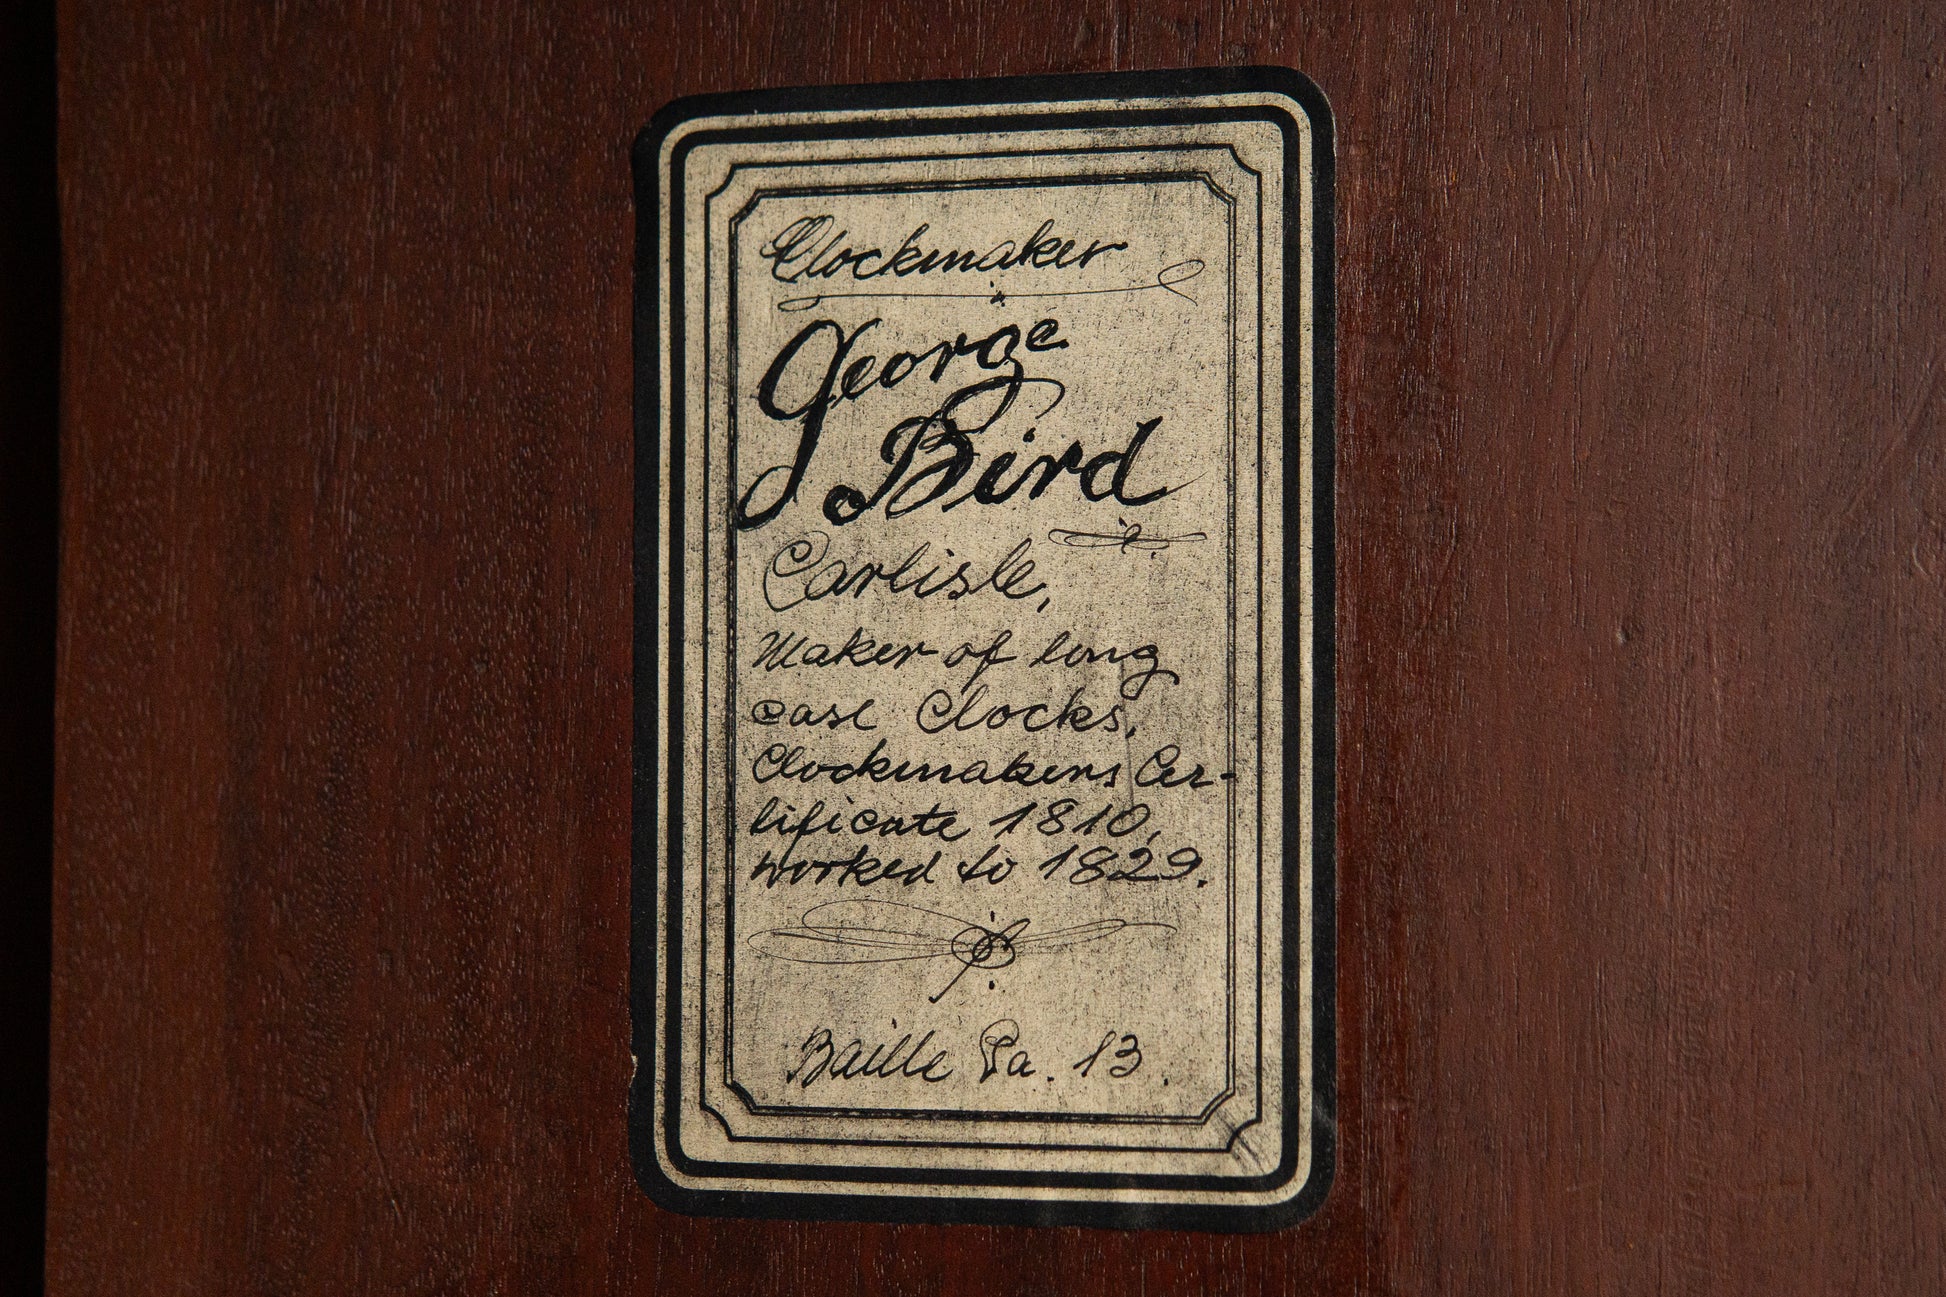 Clockmaker
George
Bird
Carlisle,
Maker of long
case Clocks,
Clockmakers Cer-
tificate 1810,
worked to 1829.
Baille Pa. 13.